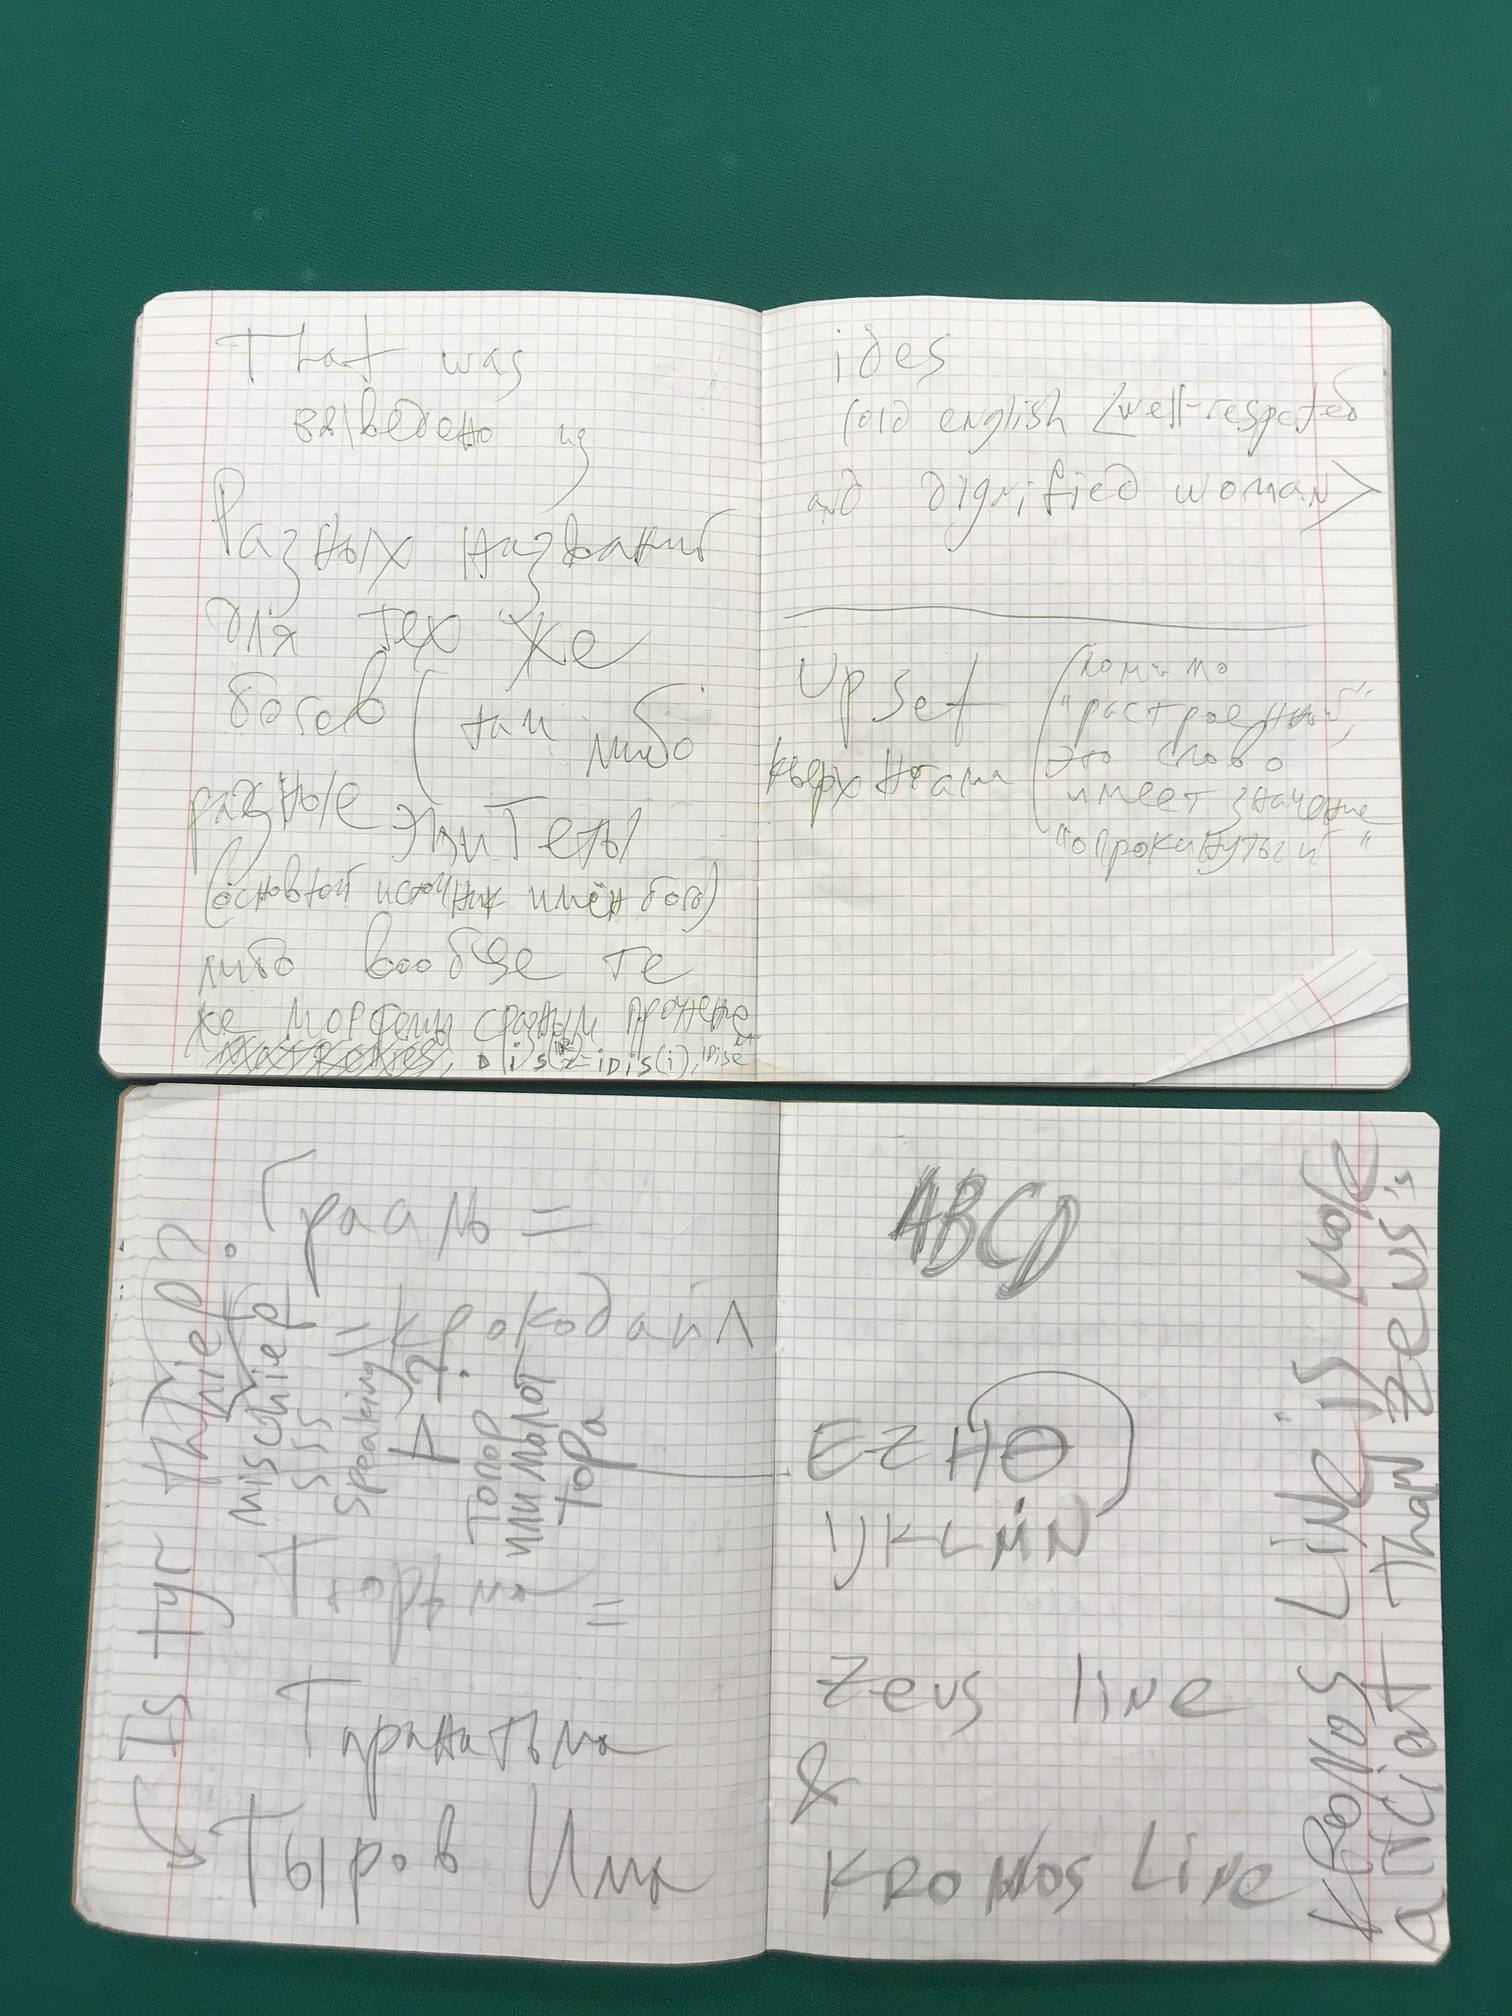 That was
выведено из
Разных названий
для тех же
богов ( там либо
разные эпитеты
(основной источник имён бога)
либо вообще те
же морфемы с разным прочтение
ides
(old english <well-respected
and dignified woman>
Upset
кверх ногами
(помимо
"расстроенный",
это слово
имеет значение
"опрокинутый"
Грааль =
= крокодайл
?
Is tyr thief?
mischief
sss
speaking
топор
или молот
тора
=
Тыров Имя
ABCD
EZHΘ
IJKLMN
Zeus line
&
KRONOS Line
KRONOS Line is more
ANCient than Zeus's